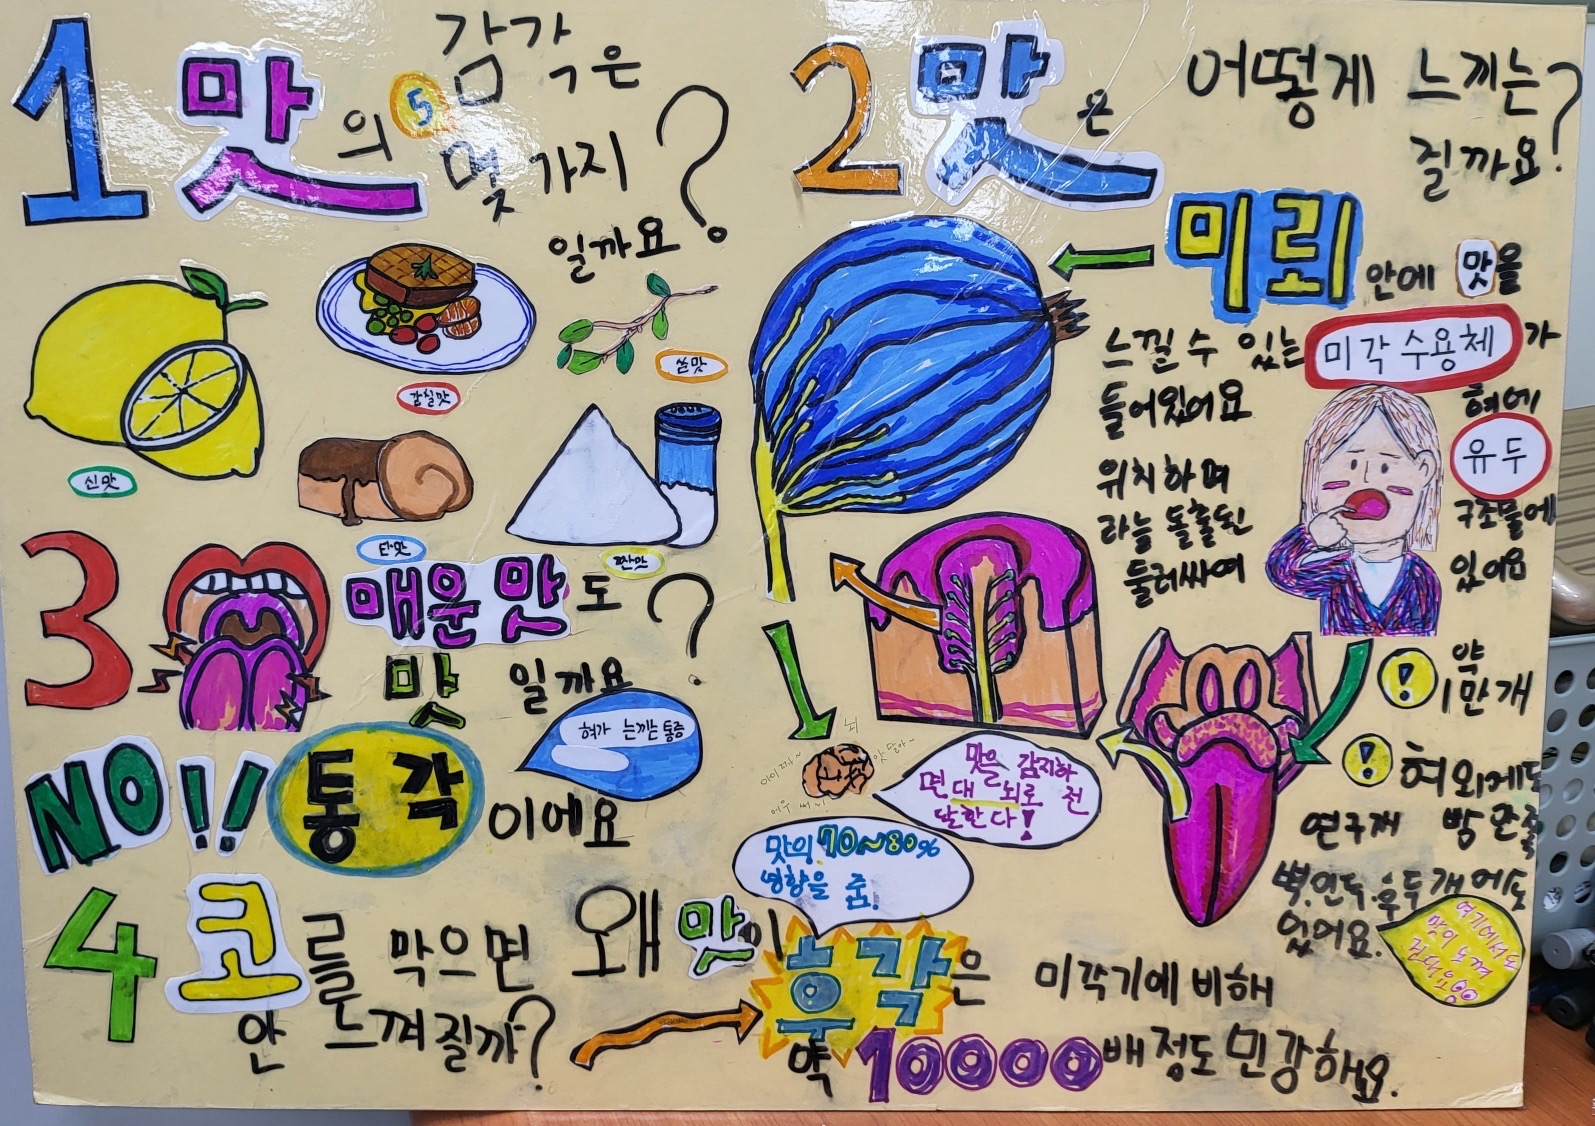 1 맛의 5 감각은
몇 가지
일까요?
신맛
감칠맛
쓴맛
단맛
짠맛
2 맛은 어떻게 느끼는
걸까요?
미뢰 안에 맛을
느낄 수 있는 미각 수용체가
들어있어요 혀에
위치하며 유두
라는 돌출된 구조물에
둘러싸여 있어요
! 약
1만개
! 혀 외에도
연구개 뺨 안쪽
벽, 인두, 후두개에도
있어요.
여기에서도
맛을 느껴
뇌
맛을 감지하
면 대뇌로 전
달한다!
3 매운맛도
맛일까요?
NO!! 통각이에요
혀가 느끼는 통증
4 코를 막으면 왜 맛이
안 느껴질까?
맛의 70~80%
영향을 줌.
후각은 미각기에 비해
약 10000배 정도 민감해요.